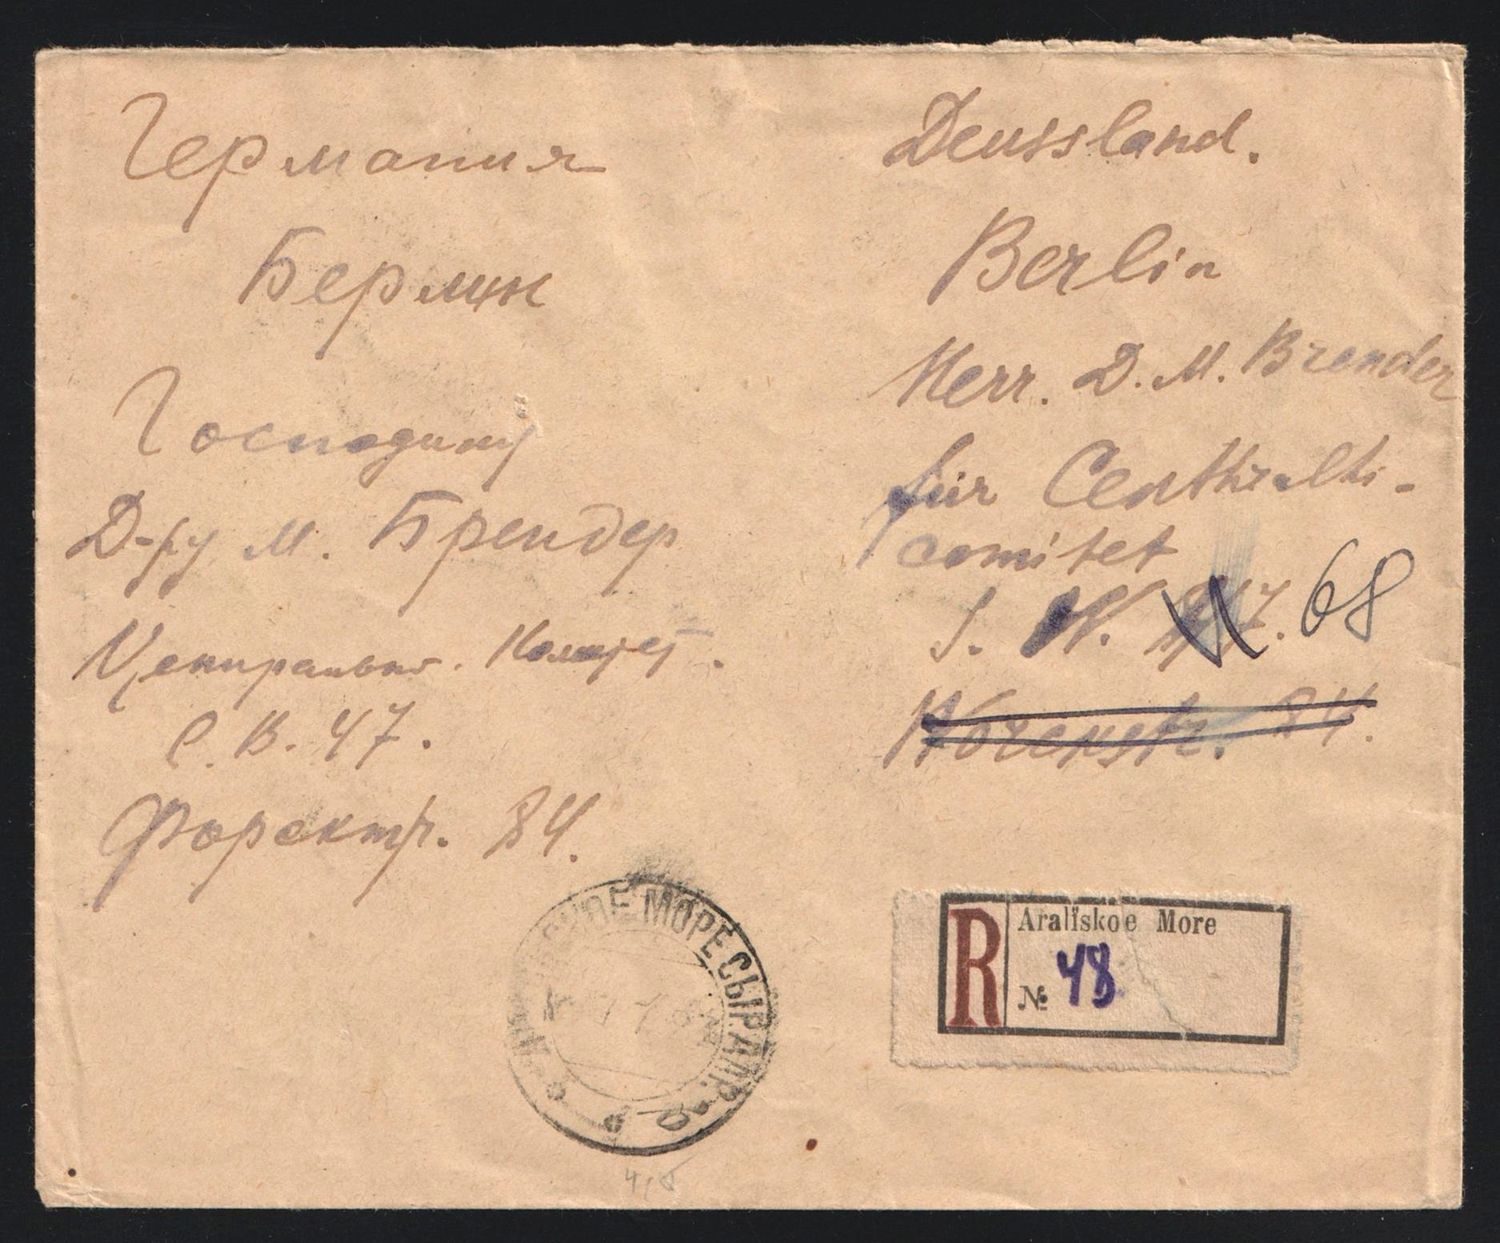 Германия
Берлин
Господину
Д-ру М. Брендер
Центральн. Комитет.
С. В. 47.
Форекстр. 84.
Deussland.
Berlin
Herr. D. M. Brender
für Centhralti-
comitet
S. W. 47. 68
84.
АРАЛЬСКОЕ МОРЕ СЫР ДАР.
R
Aralĭskoe More
№ 48